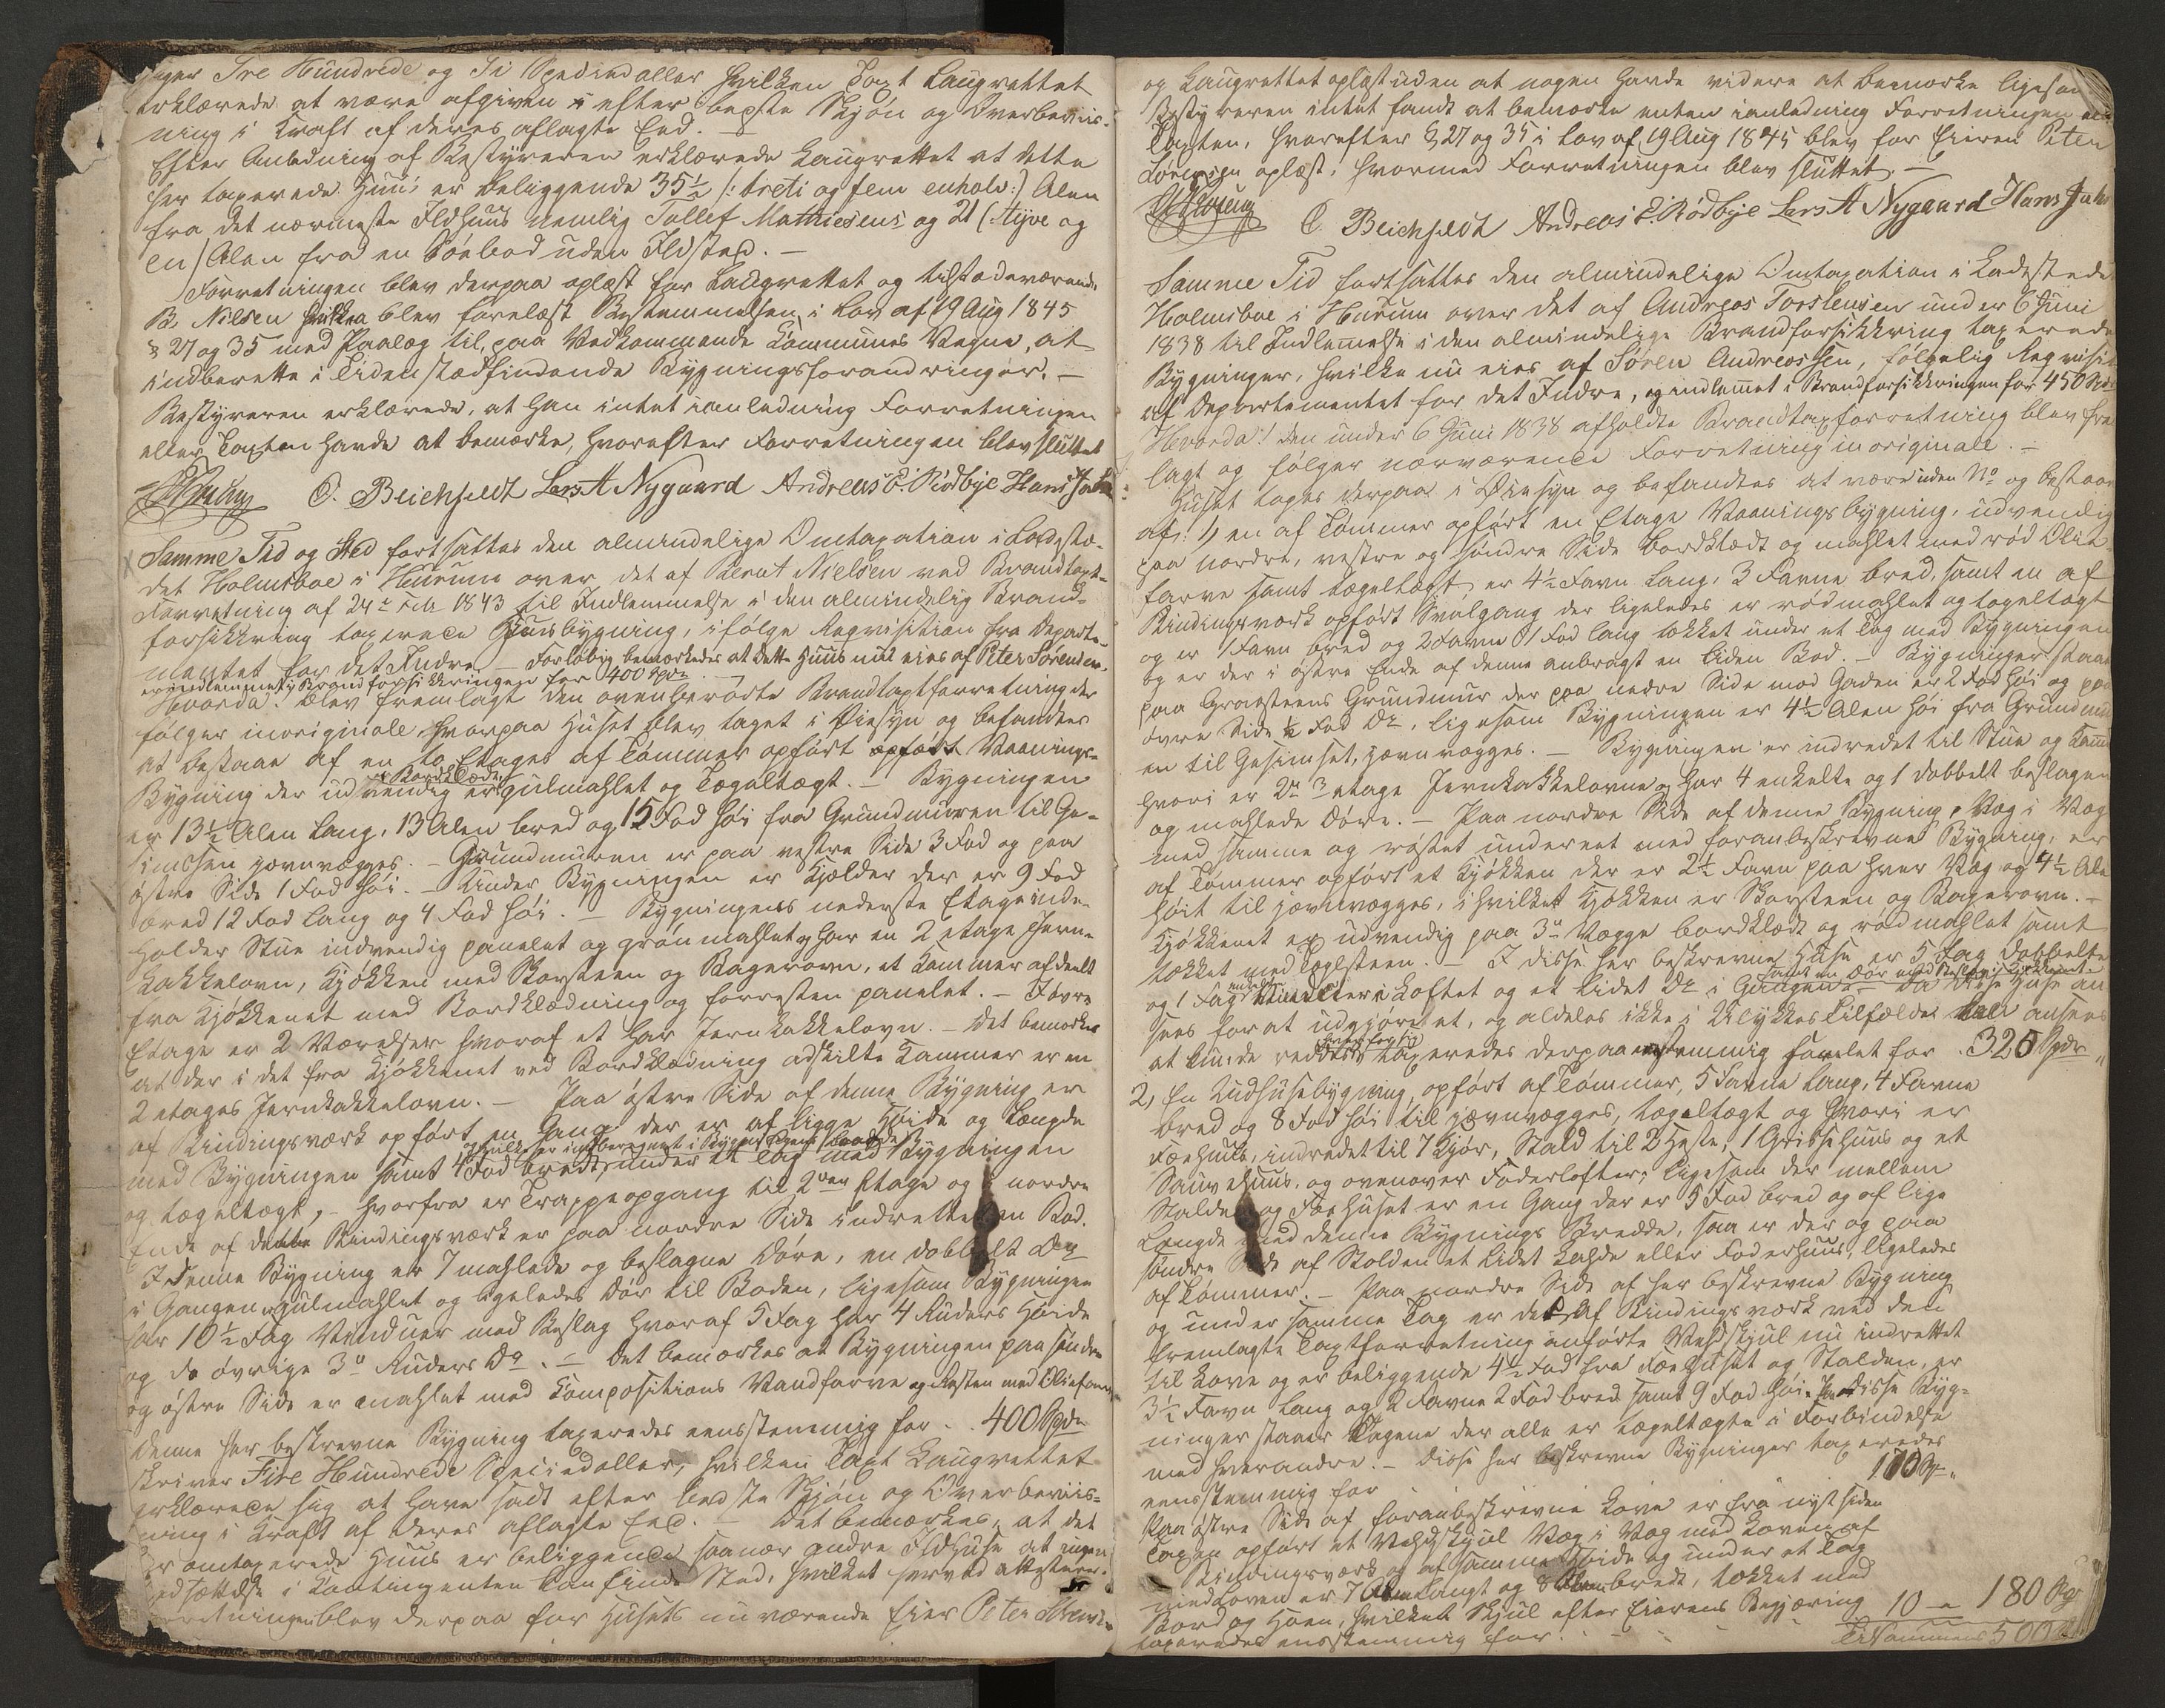 Tre Hundrede og Ti Speciedaller hvilken Taxt Laugrettet
erklærede at være afgiven efter bedste Skjøn og Overbeviis-
ning i Kraft af deres aflagte Eed. —
Efter Anledning af Bestyreren erklærede Laugrettet at dette
her taxerede Huus er beliggende 35½ /: treti og fem enhalv :/ Alen
fra det nærmeste Ildhuus nemlig Tollef Mathiesens og 21 (tyve og
en) Alen fra en Søebod uden Ildsted. —
Forretningen blev derpaa oplæst for Laugrettet og tilstedeværende
B. Nilsen hvilken blev forelæst Bestemmelsen i Lov af 19 Aug 1845
§ 27 og 35 med Paalæg til, paa Vedkommende Communes Vegne, at
indberette i Tiden stedfindende Bygningsforandringer. —
Bestyreren erklærede, at han intet ianledning Forretningen
eller Taxten havde at bemærke, hvorefter Forretningen blev sluttet
O. Beichfeldt Lars A Nygaard Andreas E. Rødbye Hans
Samme Tid og Sted fortsattes den almindelige Omtaxation i Ladeste-
det Holmsboe i Hurum over det af Bernt Nielsen ved Brandtaxt-
Forretning af 24de 1843 til Indlemmelse i den almindelig Brand-
forsikkring taxerede Huusbygning, ifølge Reqvisition fra Departe-
mentet for det Indre. — Forløbig bemærkedes at dette Huus nu eies af Peter Sørensen
er indlemmet i Brandforsikkringen for 400 Spdr. —
Hvorda! blev fremlagt den ovenberørte Brandtaxtforretning der
følger inoriginale, hvorpaa Huset blev taget i Øiesyn og befandtes
at bestaae af en to Etages af Tømmer opført opført Vaanings-
Bordklædt
Bygning der udvendig er gulmahlet og Tegeltægt. — Bygningen
er 13½ Alen Lang, 13 Alen bred og 15 Fod høi fra Grundmuren til Ge-
simssen jævnvægges. — Grundmuren er paa vestre Side 3 Fod og paa
østre Side 1 Fod høi. — Under Bygningen er Kjælder der er 9 Fod
bred 12 Fod lang og 4 Fod høi. — Bygningens nederste Etage inde-
holder Stue indvendig panelet og grønmahlet, har en 2 etage Jern-
kakkelovn, Kjøkken med Skorsteen og Bagerovn, et Kammer afdeelt
fra Kjøkkenet med Bordklædning og forresten panelet. — I øvre
Etage er 2 Værelser hvoraf et har Jernkakkelovn. — Det bemærkes
at der i det fra Kjøkkenet ved Bordklædning adskilte Kammer er en
2 etages Jernkakkelovn. — Paa østre Side af denne Bygning er
af Bindingsværk opført en Gang der er af ligge Høide og Længde
og hvilken er inberegnet i Bygningens Bredde
med Bygningen samt 4 Fod bredt, under et Tag med Bygningen
og tegeltægt, — hvorfra er Trappeopgang til 2den Etage og i nordre
Ende af dette Bindingsværk er paa nordre Side indrettet en Bod.
I denne Bygning er 7 mahlede og beslagne Døre, en dobbelt Do
i Gangen gulmahlet og ligeledes Dør til Boden, ligesom Bygningen
har 10½ Fag Vinduer med Beslag hvoraf 5 Fag har 4 Ruders Høide
og de øvrige 3de Ruders Do. — Det bemærkes at Bygningen paa søndre
og østre Side er mahlet med Compositions Vandfarve og Resten med Oliefarve
Denne her beskrevne Bygning taxeredes eensstemmig for . 400 Spdr
skriver Fire Hundrede Speciedaller, hvilken Taxt Laugrettet
erklærede sig at have sadt efter bedste Skjøn og Overbeviis-
ning i Kraft af deres aflagte Eed. — Det bemærkes, at det
her omtaxerede Huus er beliggende saanær andre Ildhuse at ingen
Nedsættelse i Contingenten kan finde Sted, hvilket herved attesteres.
Forretningen blev derpaa for Husets nuværende Eier Peter Sørensen
og Laugrettet oplæst uden at nogen havde videre at bemærke ligesom
Bestyreren intet fandt at bemærke enten ianledning Forretningen eller
Taxten, hvorefter § 27 og 35 i Lov af 19 Aug 1845 blev for Eieren Peter
Sørensen oplæst, hvormed Forretningen blev sluttet. —
O. Beichfeldt Andreas E. Rødbye Lars A Nygaard Hans
Samme Tid fortsattes den almindelige Omtaxation i Ladestedet
Holmsboe i Hurum over det af Andreas Torstensen under 6 Juni
1838 til Indlemmelse i den almindelige Brandforsikkring taxerede
Bygninger, hvilke nu eies af Søren Andreassen, følgelig Reqvisition
af Departementet for det Indre, og indlemmet i Brandforsikkringen for 450 Spdr
Hvorda! den under 6 Juni 1838 afholdte Brandtaxtforretning blev frem-
lagt og følger nærværende Forretning in originale. —
Huset toges derpaa i Øiesyn og befandtes at være uden No og bestaae
af: 1) en af Tømmer opført en Etage Vaaningsbygning, udvendig
paa nordre, vestre og søndre Side bordklædt og mahlet med rød Olie-
farve samt tegeltægt, er 4½ Favn Lang, 3 Favne bred, samt en af
Bindingsværk opført Svalgang der ligeledes er rødmahlet og tegeltægt
og er 1 Favn bred og 2 Favne 1 Fod lang tækket under et Tag med Bygningen
og er der i østre Ende af denne anbragt en liden Bod. — Bygninger staaer
paa Graasteens Grundmur der paa nedre Side mod Gaden er 2 Fod høi og paa
øvre Side ½ Fod Do, ligesom Bygningen er 4½ Alen høi fra Grundmur-
en til Gesimset, jævnvægges. — Bygningen er indredet til Stue og Kammer
hvori er 2de 3 etage Jernkakkelovne og har 4 enkelte og 1 dobbelt beslagen
og mahlede Døre. — Paa nordre Side af denne Bygning, Væg i Væg
med samme og røstet underet med foranbeskrevne Bygning, er
af Tømmer opført et Kjøkken der er 2½ Favn paa hver Væg og 4½ Alen
høit til jævnvægges, i hvilket Kjøkken er Skorsteen og Bagerovn. —
Kjøkkenet er udvendig paa 3de Vægge bordklædt og rødmahlet samt
tækket med Teglsteen. — I disse her beskrevne Huse er 5 Fag dobbelte
samt en Dør med Beslag i Kjøkkenet
og 1 Fag enkelt Vinduer i Loftet og et lidet Do i Gangene — Da disse Huse an-
sees for at udgjøre et, og aldeles ikke i Ulykkestilfælde kan ansees
at kunde reddes taxeredes derpaa eenstemmig samlet for . 320 Spdr
2) En Uudhusebygning, opført af Tømmer, 5 Favne Lang, 4 Favne
bred og 8 Fod høi til jævnvægges, tegeltægt og hvori er
Fæehuus, indredet til 7 Kjør, Stald til 2 Heste, 1 Grissehuus og et
Sauvehuus, og ovenover Foderlofter; ligesom der mellem
Stalden og Fæehuset er en Gang der er 5 Fod bred og af lige
Længde med denne Bygnings Bredde, saa er der og paa
søndre Side af Stalden et lidet Lahde eller Foderhuus, ligeledes
af Tømmer. — Paa nordre Side af her beskrevne Bygning
og under samme Tag er det af Bindingsværk ved den
fremlagte Taxtforretning anførte Vedskjul nu indrettet
til Lave og er beliggende 4½ Fod fra Fæehuset og Stalden, er
3½ Favn lang og 2 Favne 2 Fod bred samt 9 Fod høi. Paa disse Byg-
ninger staaer Tagene der alle er tegeltægte i Forbindelse
med hverandre. — Disse her beskrevne Bygninger taxeredes
eensstemmig for 170 Sp
Paa østre Side af foranbeskrevne Lave er fra nyst siden
Taxten opført et Vedskjul Væg i Væg med Laven af
Bindingsværk og af samme Høide og under et Tag
med Laven er 7 Alen Langt og 8 Alen bredt, tækket med
Bord og Hoen, hvilket Skjul efter Eierens Begjæring 10 — 180 Sp
taxeredes eensstemmig for: Tilsammens 500